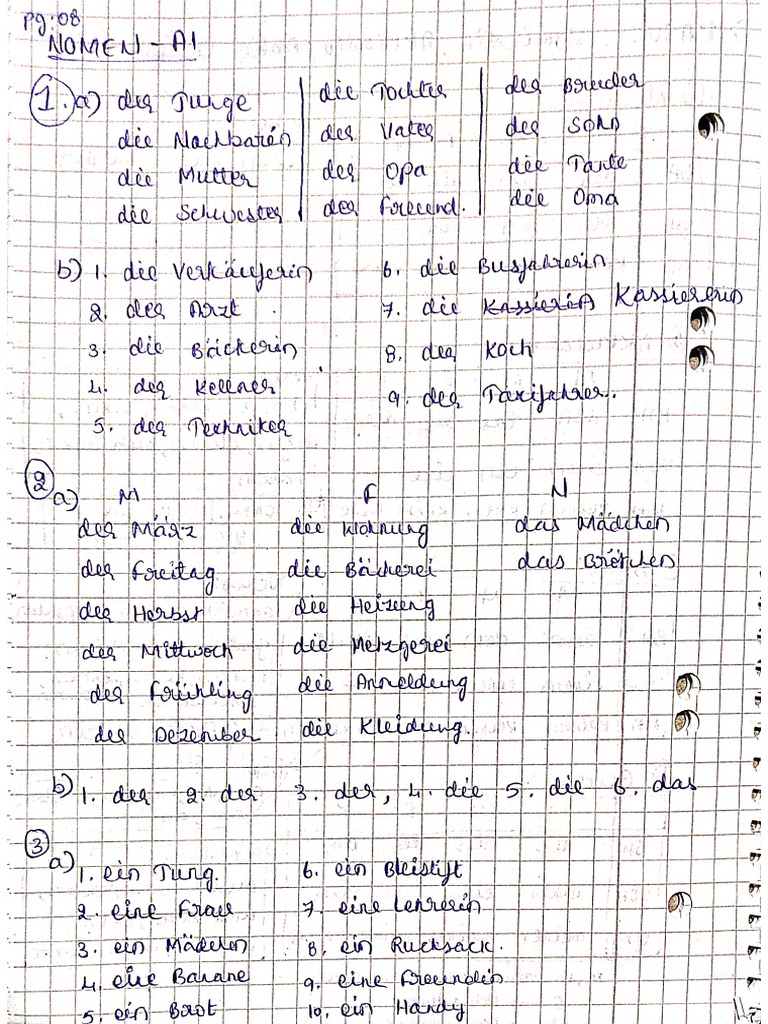 pg:08
NOMEN - A1
1. a) der Junge die Tochter der Bruder
die Nachbarin der Vater der Sohn
die Mutter der Opa die Tante
die Schwester der Freund. die Oma
b) 1. die Verkäuferin 6. die Busfahrerin
2. der Arzt 7. die Kassierin Kassiererin
3. die Bäckerin 8. der Koch
4. der Kellner 9. der Taxifahrer.
5. der Techniker
2 a) M F N
der März die Wohnung das Mädchen
der Freitag die Bäckerei das Brötchen
der Herbst die Heizung
der Mittwoch die Metzgerei
der Frühling die Anmeldung
der Dezember die Kleidung.
b) 1. der 2. der 3. der, 4. die 5. die 6. das
3 a) 1. ein Jung. 6. ein Bleistift
2. eine Frau 7. eine Lehrerin
3. ein Mädchen 8. ein Rucksack.
4. eine Banane 9. eine Freundin
5. ein Brot 10. ein Handy